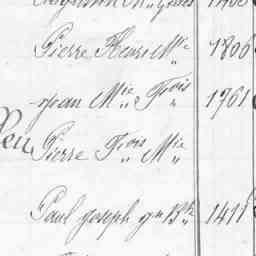 Pierre Henri M.ie 1806
Jean M.ie F.ois 1761
Pierre F.ois M.ie
Paul Joseph J.n B.te 1411